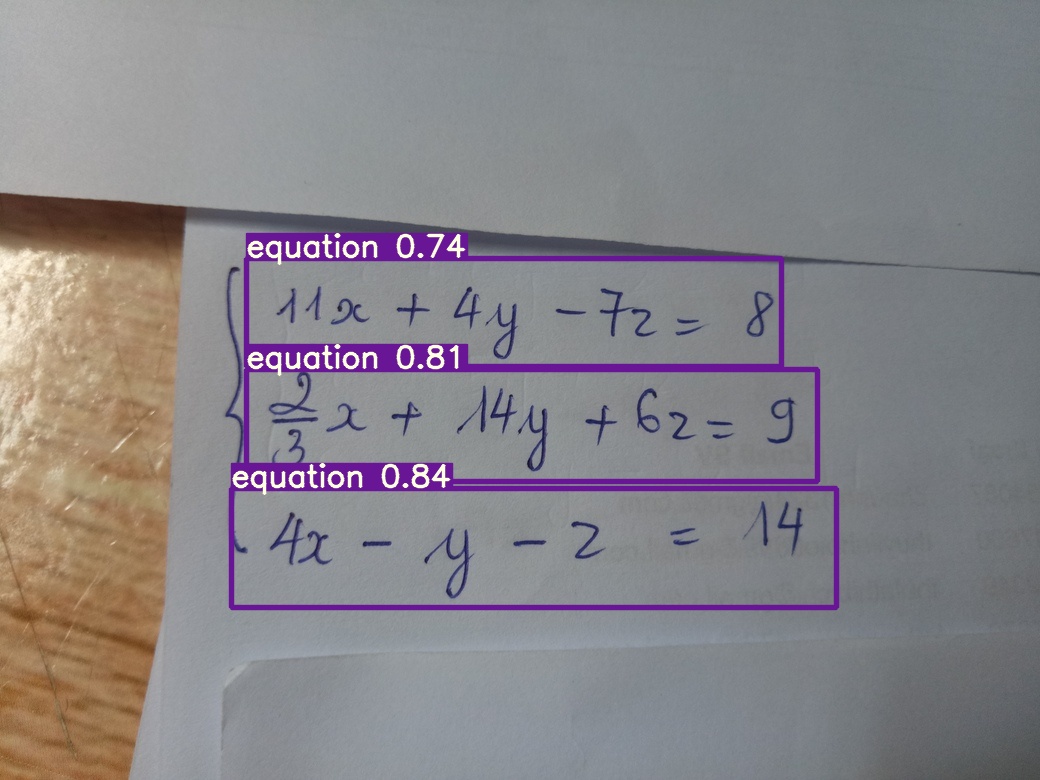 equation 0.74
11x + 4y - 7z = 8
equation 0.81
2/3 x + 14y + 6z = 9
equation 0.84
4x - y - z = 14